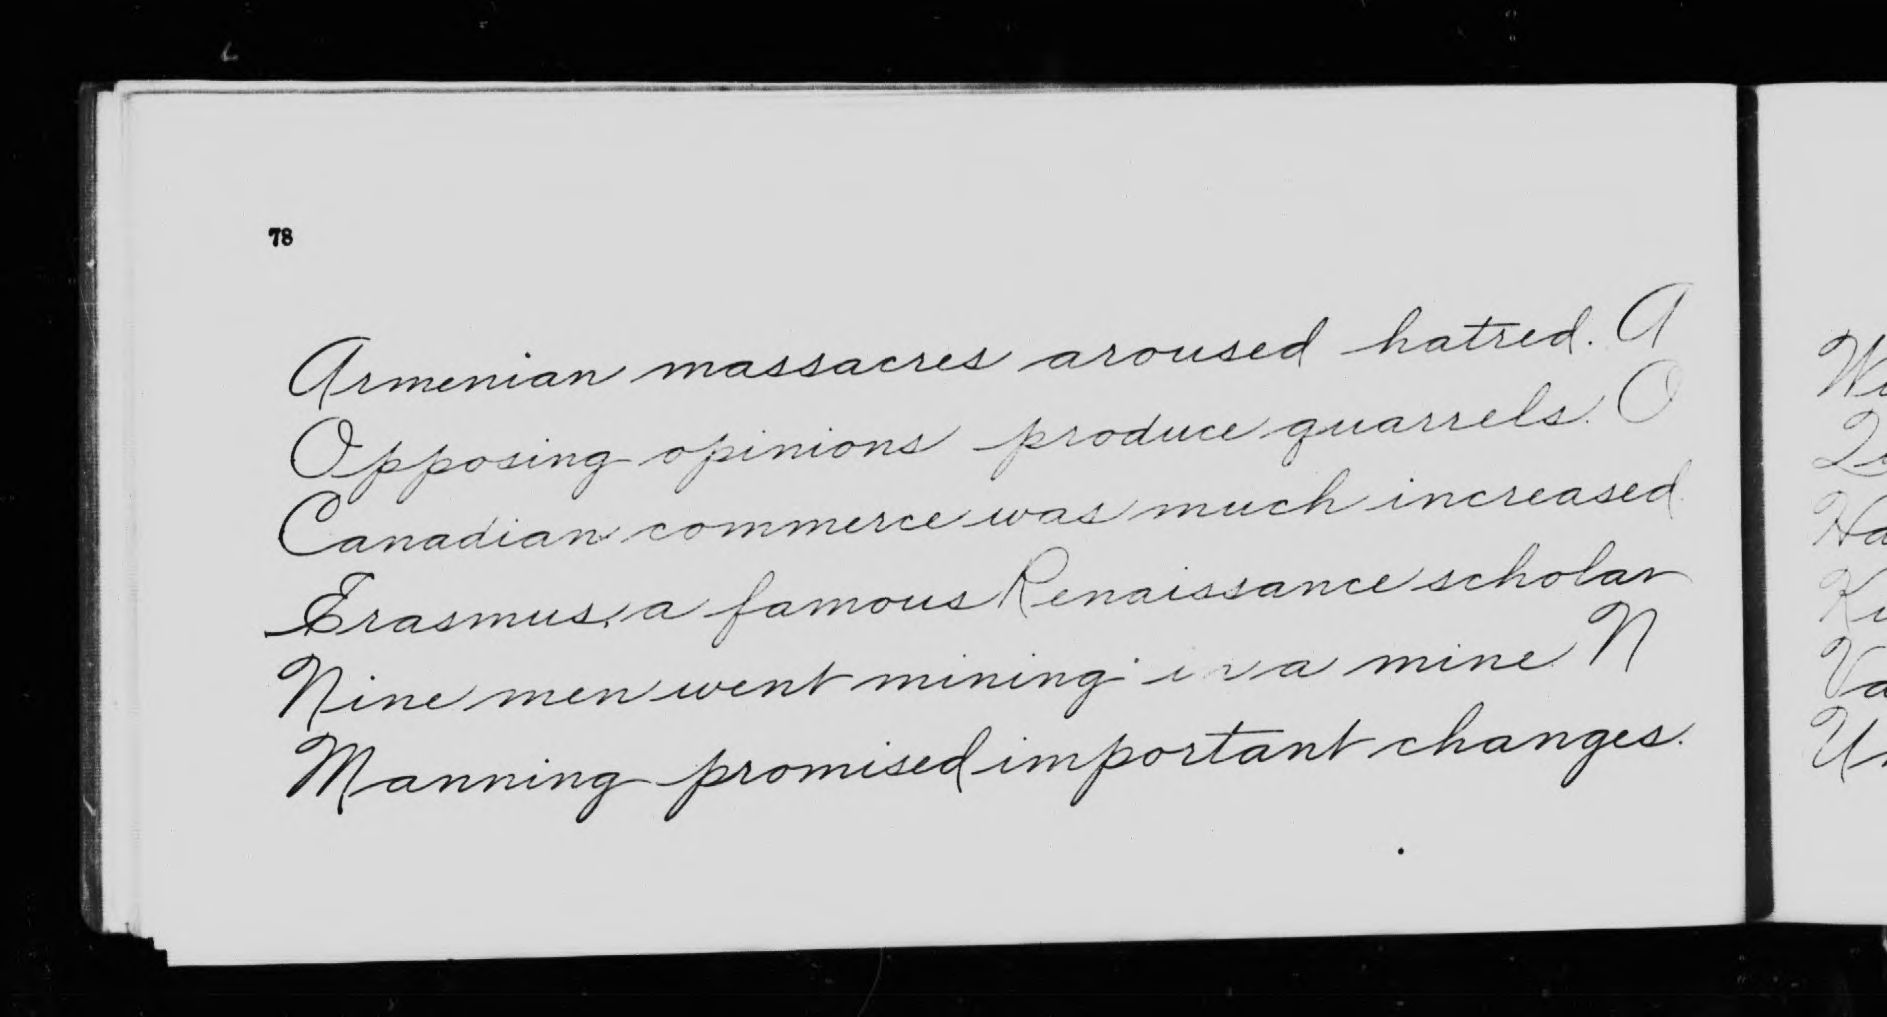 78
Armenian massacres aroused hatred. A
Opposing opinions produce quarrels. O
Canadian commerce was much increased.
Erasmus, a famous Renaissance scholar
Nine men went mining in a mine. N
Manning promised important changes.
W
Q
Ha
K
Va
U